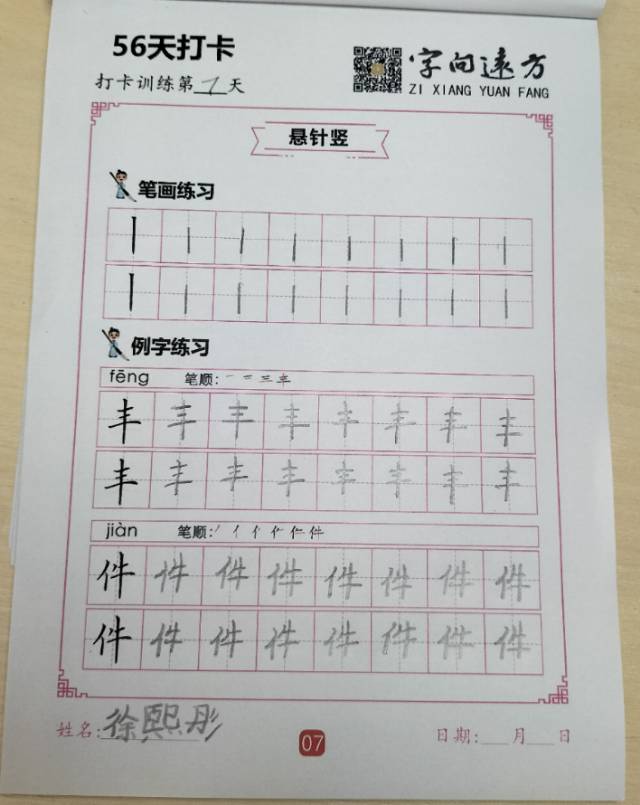 56天打卡
打卡训练第7天
字向远方
ZI XIANG YUAN FANG
悬针竖
笔画练习
丨丨丨丨丨丨丨丨
丨丨丨丨丨丨丨丨
例字练习
fēng 笔顺: 一 二 三 丰
丰丰丰丰丰丰丰丰
丰丰丰丰丰丰丰丰
jiàn 笔顺: 丿 亻 件
件件件件件件件件
件件件件件件件件
姓名:徐熙彤
07
日期: 月 日